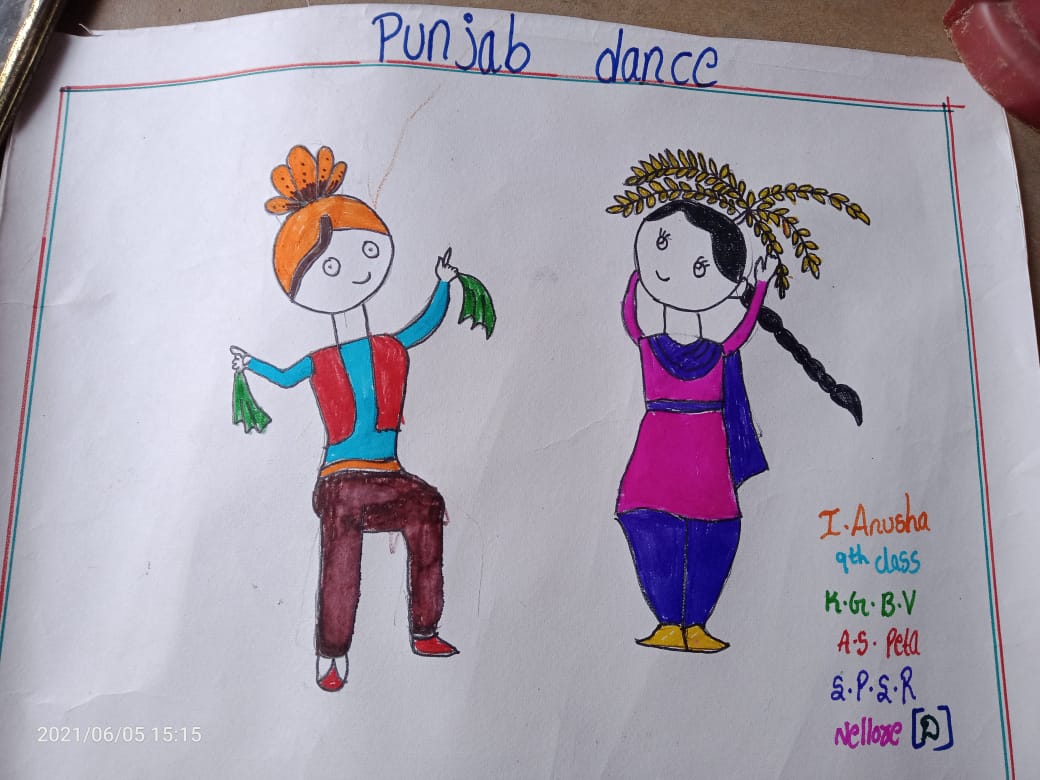 Punjab dance
I. Anusha
9th class
K.G.B.V
A.S. Peta
S.P.S.R
Nellore [D]
2021/06/05 15:15